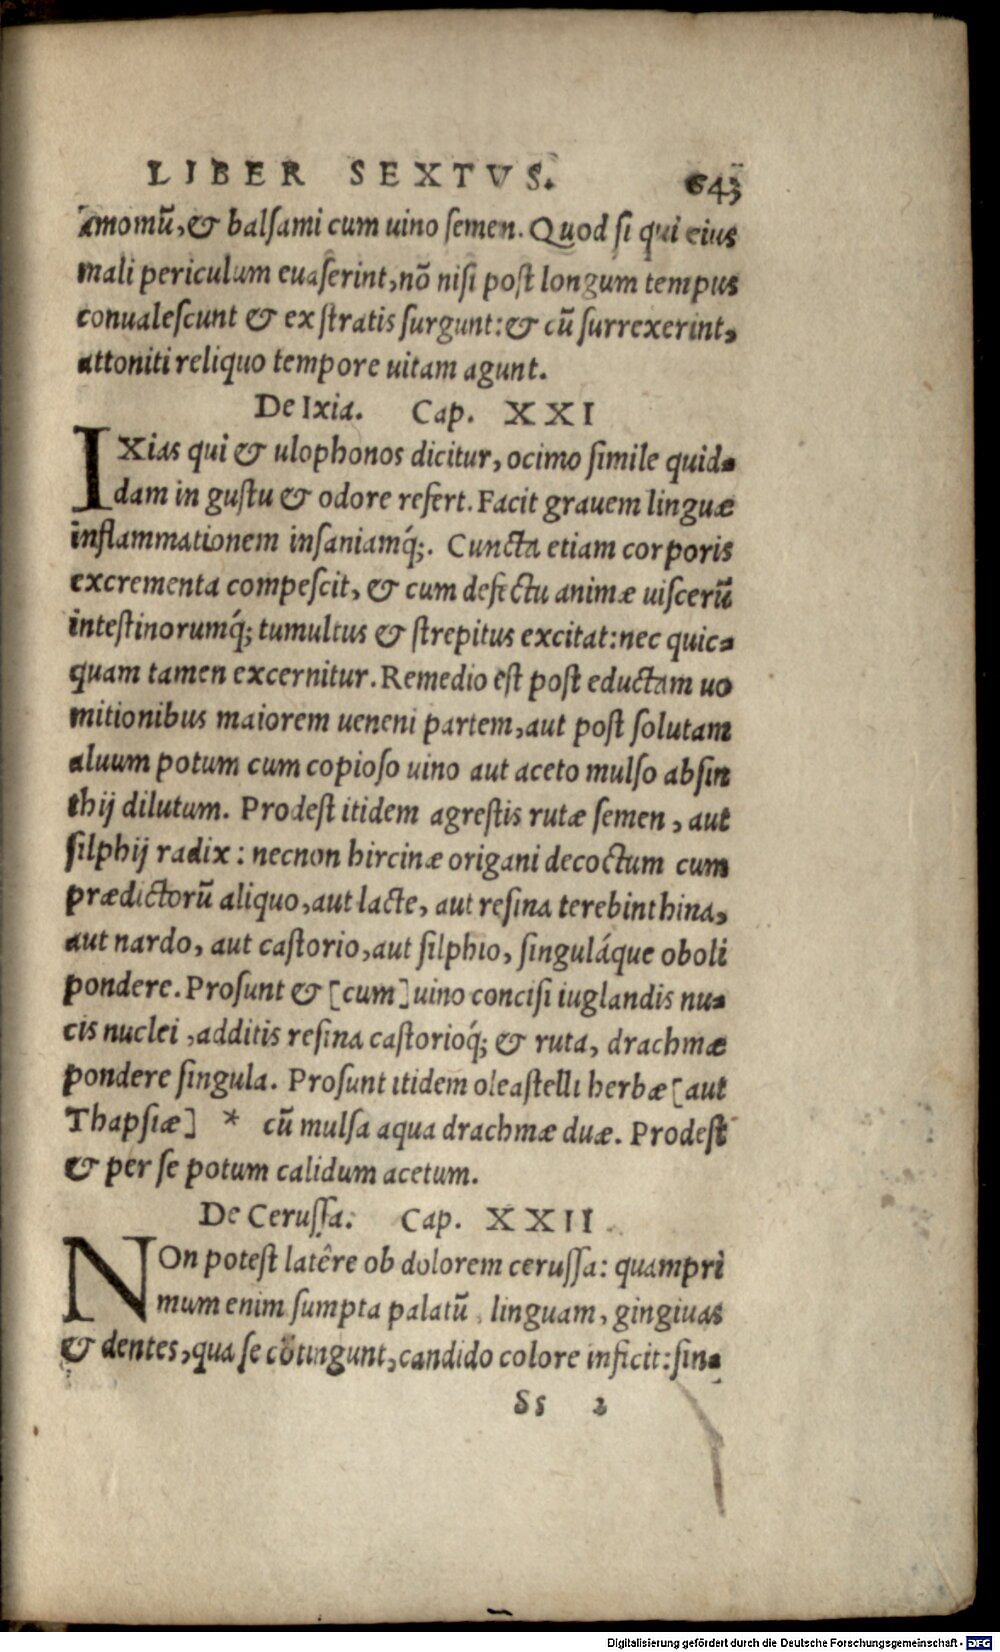 LIBER SEXTVS. 643
amomũ, & balſami cum uino ſemen. Quod ſi qui eius
mali periculum euaſerint, nõ niſi poſt longum tempus
conualeſcunt & ex ſtratis ſurgunt: & cũ ſurrexerint,
attoniti reliquo tempore uitam agunt.
De Ixia. Cap. XXI
IXias qui & ulophonos dicitur, ocimo ſimile quid-
dam in guſtu & odore refert. Facit grauem linguæ
inflammationem inſaniamq́;. Cuncta etiam corporis
excrementa compeſcit, & cum defectu animæ uiſcerũ
inteſtinorumq́; tumultus & ſtrepitus excitat: nec quic-
quam tamen excernitur. Remedio eſt poſt eductam uo
mitionibus maiorem ueneni partem, aut poſt ſolutam
aluum potum cum copioſo uino aut aceto mulſo abſin
thij dilutum. Prodeſt itidem agreſtis rutæ ſemen, aut
ſilphij radix: necnon hircinæ origani decoctum cum
prædictorũ aliquo, aut lacte, aut reſina terebinthina,
aut nardo, aut caſtorio, aut ſilphio, ſinguláque oboli
pondere. Proſunt & [cum] uino conciſi iuglandis nu-
cis nuclei, additis reſina caſtorioq́; & ruta, drachmæ
pondere ſingula. Proſunt itidem oleaſtelli herbæ [aut
Thapſiæ] * cũ mulſa aqua drachmæ duæ. Prodeſt
& per ſe potum calidum acetum.
De Ceruſſa. Cap. XXII.
NOn poteſt latêre ob dolorem ceruſſa: quampri
mum enim ſumpta palatũ, linguam, gingiuas
& dentes, qua ſe cõtingunt, candido colore inficit: ſin-
Ss 2
Digitalisierung gefördert durch die Deutsche Forschungsgemeinschaft - DFG